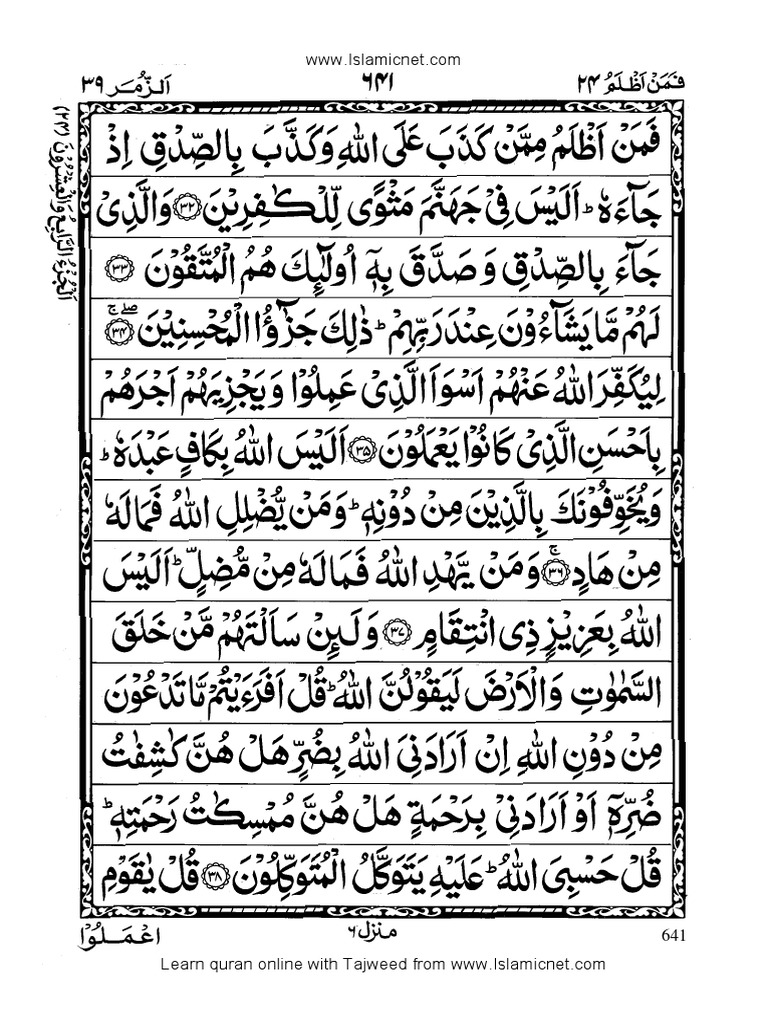 www.Islamicnet.com
فَمَنْ اَظْلَمُ ٢٤
٦٤١
اَلزُّمَر ٣٩
اَلْجُزْءُ الرَّابِعُ وَالْعِشْرُوْنَ (٢٤)
فَمَنْ اَظْلَمُ مِمَّنْ كَذَبَ عَلَى اللّٰهِ وَكَذَّبَ بِالصِّدْقِ اِذْ
جَآءَهٗ ؕ اَلَيْسَ فِىْ جَهَنَّمَ مَثْوًى لِّلْكٰفِرِيْنَ ﴿٣٢﴾ وَالَّذِىْ
جَآءَ بِالصِّدْقِ وَصَدَّقَ بِهٖۤ اُولٰٓئِكَ هُمُ الْمُتَّقُوْنَ ﴿٣٣﴾
لَهُمْ مَّا يَشَآءُوْنَ عِنْدَ رَبِّهِمْ ؕ ذٰلِكَ جَزٰٓؤُا الْمُحْسِنِيْنَ ﴿٣٤﴾ ۖۚ
لِيُكَفِّرَ اللّٰهُ عَنْهُمْ اَسْوَاَ الَّذِىْ عَمِلُوْا وَيَجْزِيَهُمْ اَجْرَهُمْ
بِاَحْسَنِ الَّذِىْ كَانُوْا يَعْمَلُوْنَ ﴿٣٥﴾ اَلَيْسَ اللّٰهُ بِكَافٍ عَبْدَهٗ ؕ
وَيُخَوِّفُوْنَكَ بِالَّذِيْنَ مِنْ دُوْنِهٖ ؕ وَمَنْ يُّضْلِلِ اللّٰهُ فَمَا لَهٗ
مِنْ هَادٍ ۚ﴿٣٦﴾ وَمَنْ يَّهْدِ اللّٰهُ فَمَا لَهٗ مِنْ مُّضِلٍّ ؕ اَلَيْسَ
اللّٰهُ بِعَزِيْزٍ ذِى انْتِقَامٍ ﴿٣٧﴾ وَلَئِنْ سَاَلْتَهُمْ مَّنْ خَلَقَ
السَّمٰوٰتِ وَالْاَرْضَ لَيَقُوْلُنَّ اللّٰهُ ؕ قُلْ اَفَرَءَيْتُمْ مَّا تَدْعُوْنَ
مِنْ دُوْنِ اللّٰهِ اِنْ اَرَادَنِىَ اللّٰهُ بِضُرٍّ هَلْ هُنَّ كٰشِفٰتُ
ضُرِّهٖۤ اَوْ اَرَادَنِىْ بِرَحْمَةٍ هَلْ هُنَّ مُمْسِكٰتُ رَحْمَتِهٖ ؕ
قُلْ حَسْبِىَ اللّٰهُ ؕ عَلَيْهِ يَتَوَكَّلُ الْمُتَوَكِّلُوْنَ ﴿٣٨﴾ قُلْ يٰقَوْمِ
641
منزل ٦
اعْمَلُوْا
Learn quran online with Tajweed from www.Islamicnet.com